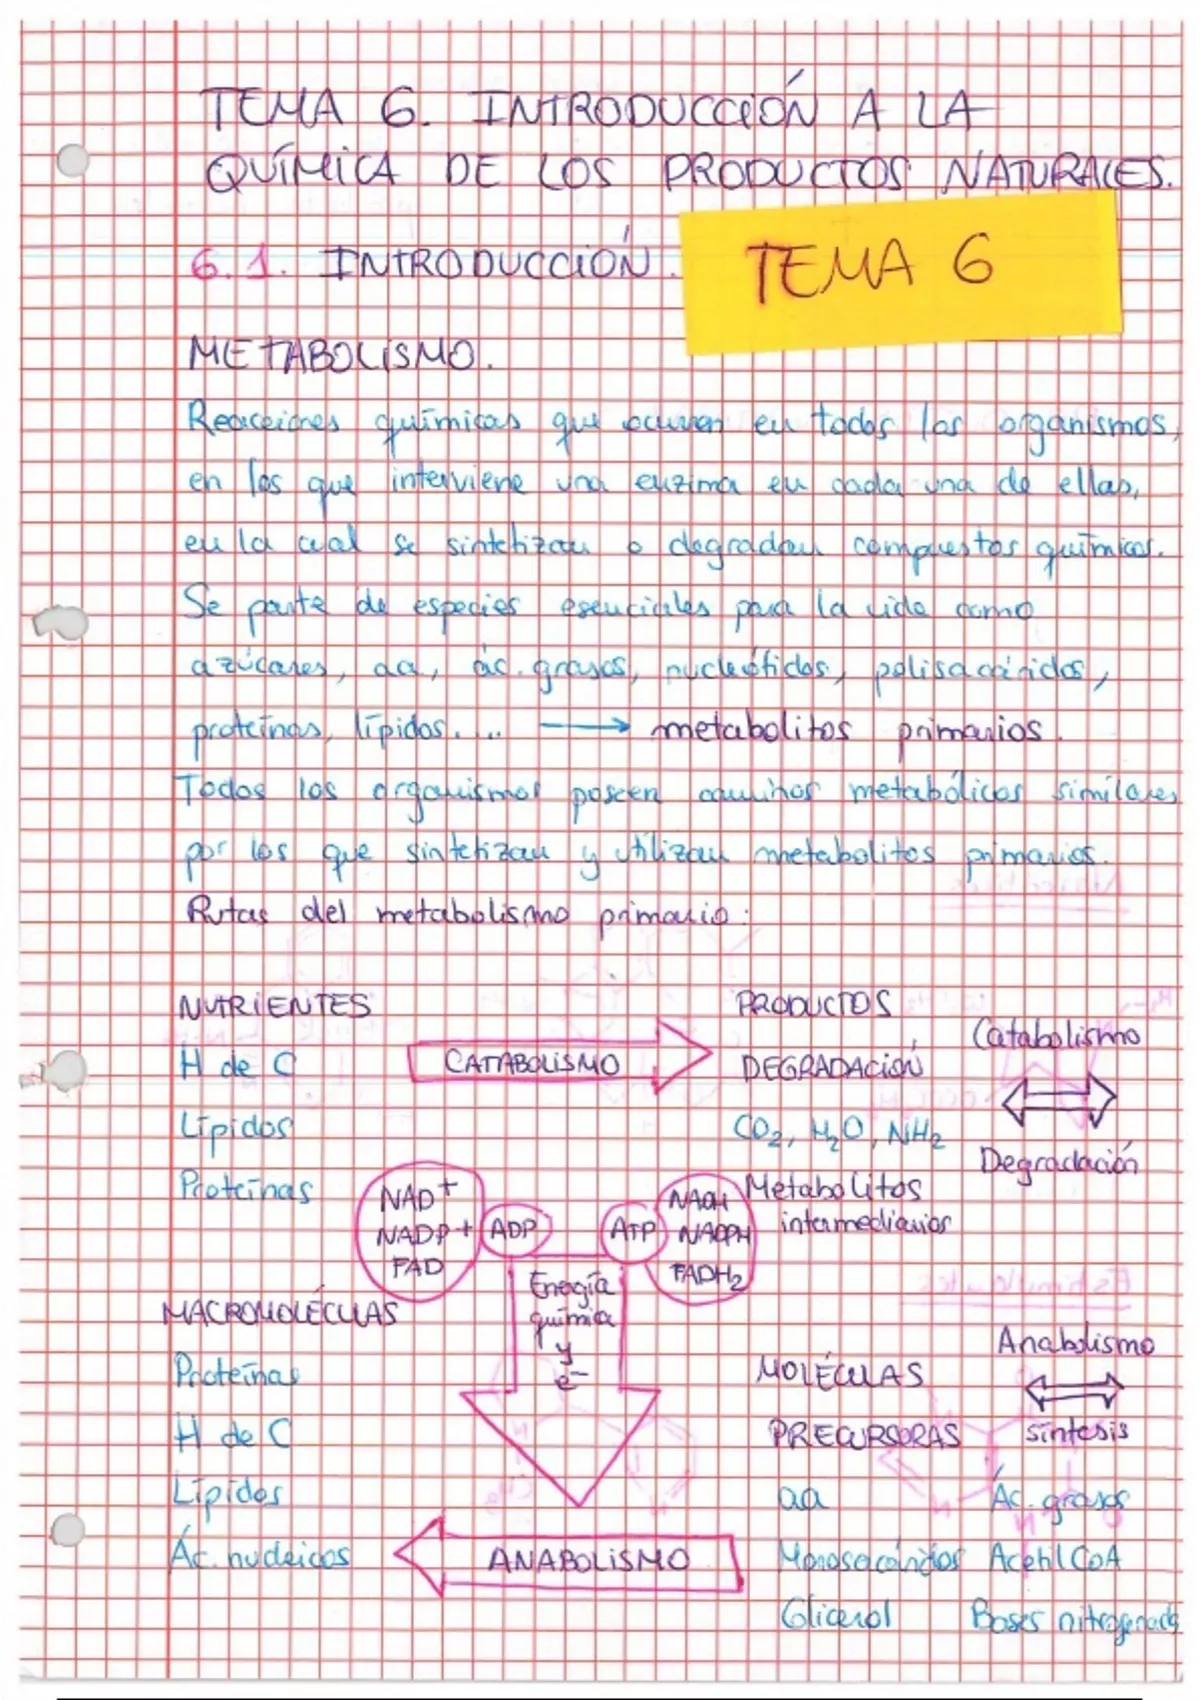 TEMA 6. INTRODUCCIÓN A LA
QUÍMICA DE LOS PRODUCTOS NATURALES.
6.1. INTRODUCCIÓN.
TEMA 6
METABOLISMO.
Reacciones químicas que ocurren en todos los organismos,
en los que interviene una enzima en cada una de ellas,
en la cual se sintetizan o degradan compuestos químicos.
Se parte de especies esenciales para la vida como
azúcares, aa, ác. grasos, nucleótidos, polisacáridos,
proteínas, lípidos.... → metabolitos primarios.
Todos los organismos poseen caminos metabólicos similares
por los que sintetizan y utilizan metabolitos primarios.
Rutas del metabolismo primario:
NUTRIENTES
H de C
Lípidos
Proteínas
CATABOLISMO
PRODUCTOS
DEGRADACIÓN
CO2, H2O, NH2
Metabolitos
intermediarios
Catabolismo
Degradación
NAD+
NADP+
FAD
ADP
ATP
NADH
NADPH
FADH2
Energía
química
y
e-
MACROMOLÉCULAS
Proteínas
H de C
Lípidos
Ác. nucleicos
ANABOLISMO
MOLÉCULAS
PRECURSORAS
Anabolismo
síntesis
aa
Ác. grasos
Monosacáridos
Acetil CoA
Glicerol
Bases nitrogenadas